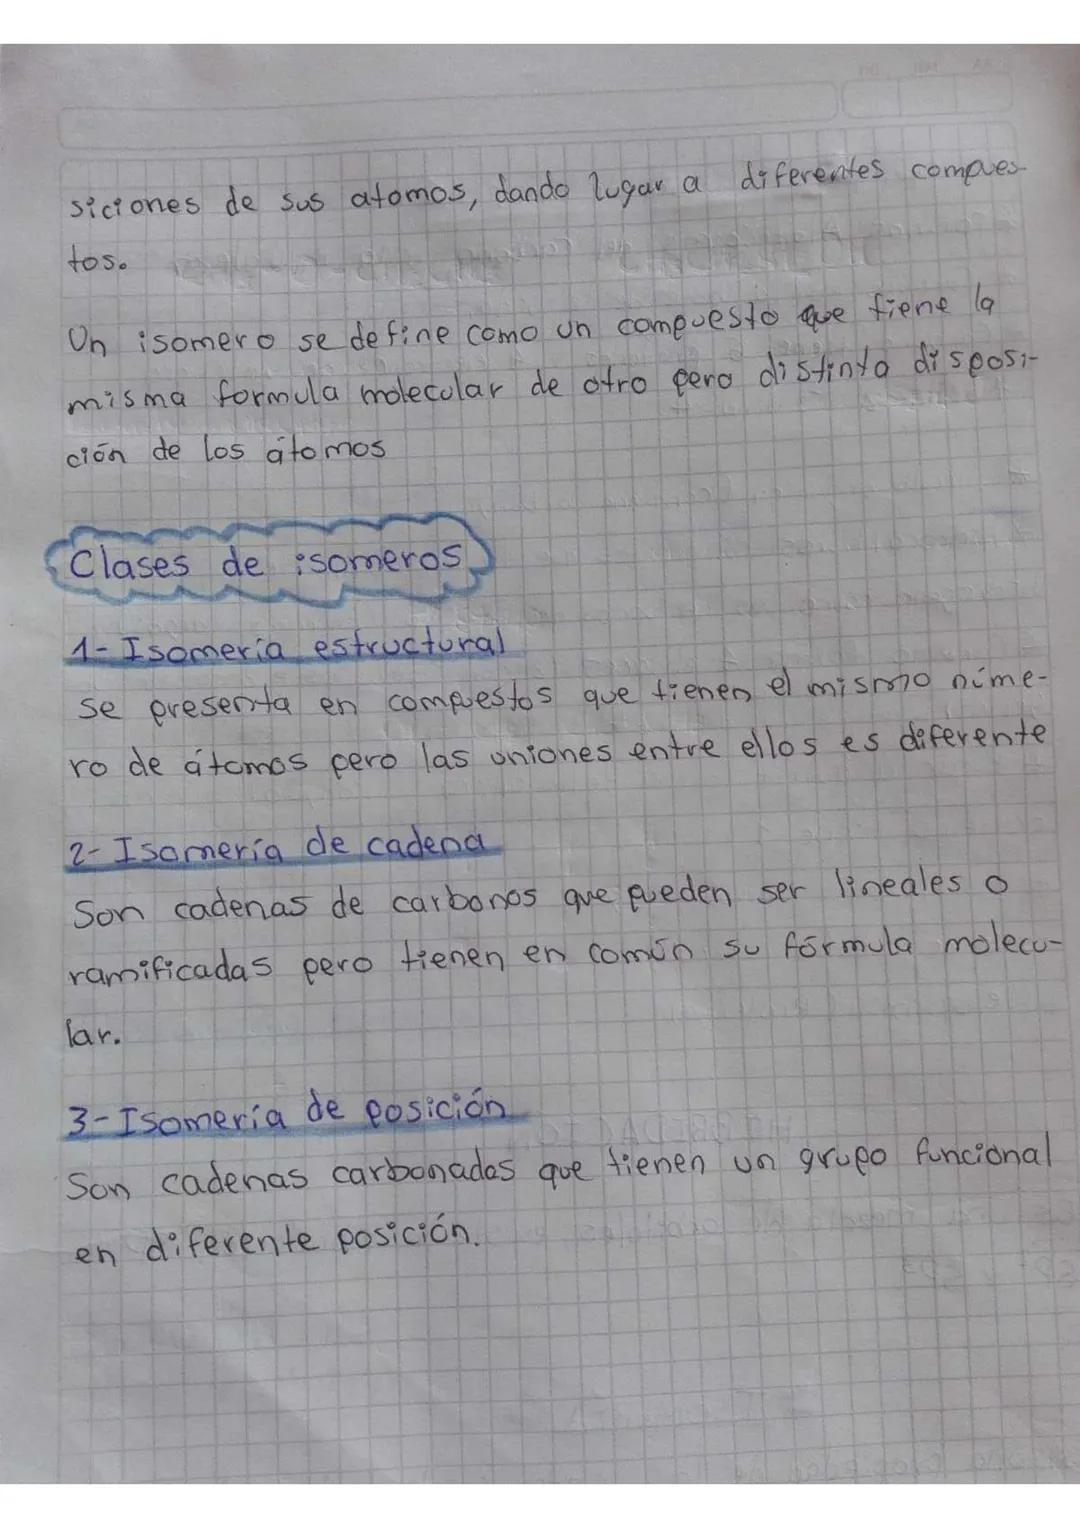 siciones de sus atomos, dando lugar a diferentes compues-
tos.
Un isomero se define como un compuesto que tiene la
misma formula molecular de otro pero distinta disposi-
ción de los átomos
Clases de isomeros
1- Isomería estructural
se presenta en compuestos que tienen el mismo núme-
ro de átomos pero las uniones entre ellos es diferente
2- Isomería de cadena
Son cadenas de carbonos que pueden ser lineales o
ramificadas pero tienen en común su fórmula molecu-
lar.
3- Isomería de posición
Son cadenas carbonadas que tienen un grupo funcional
en diferente posición.